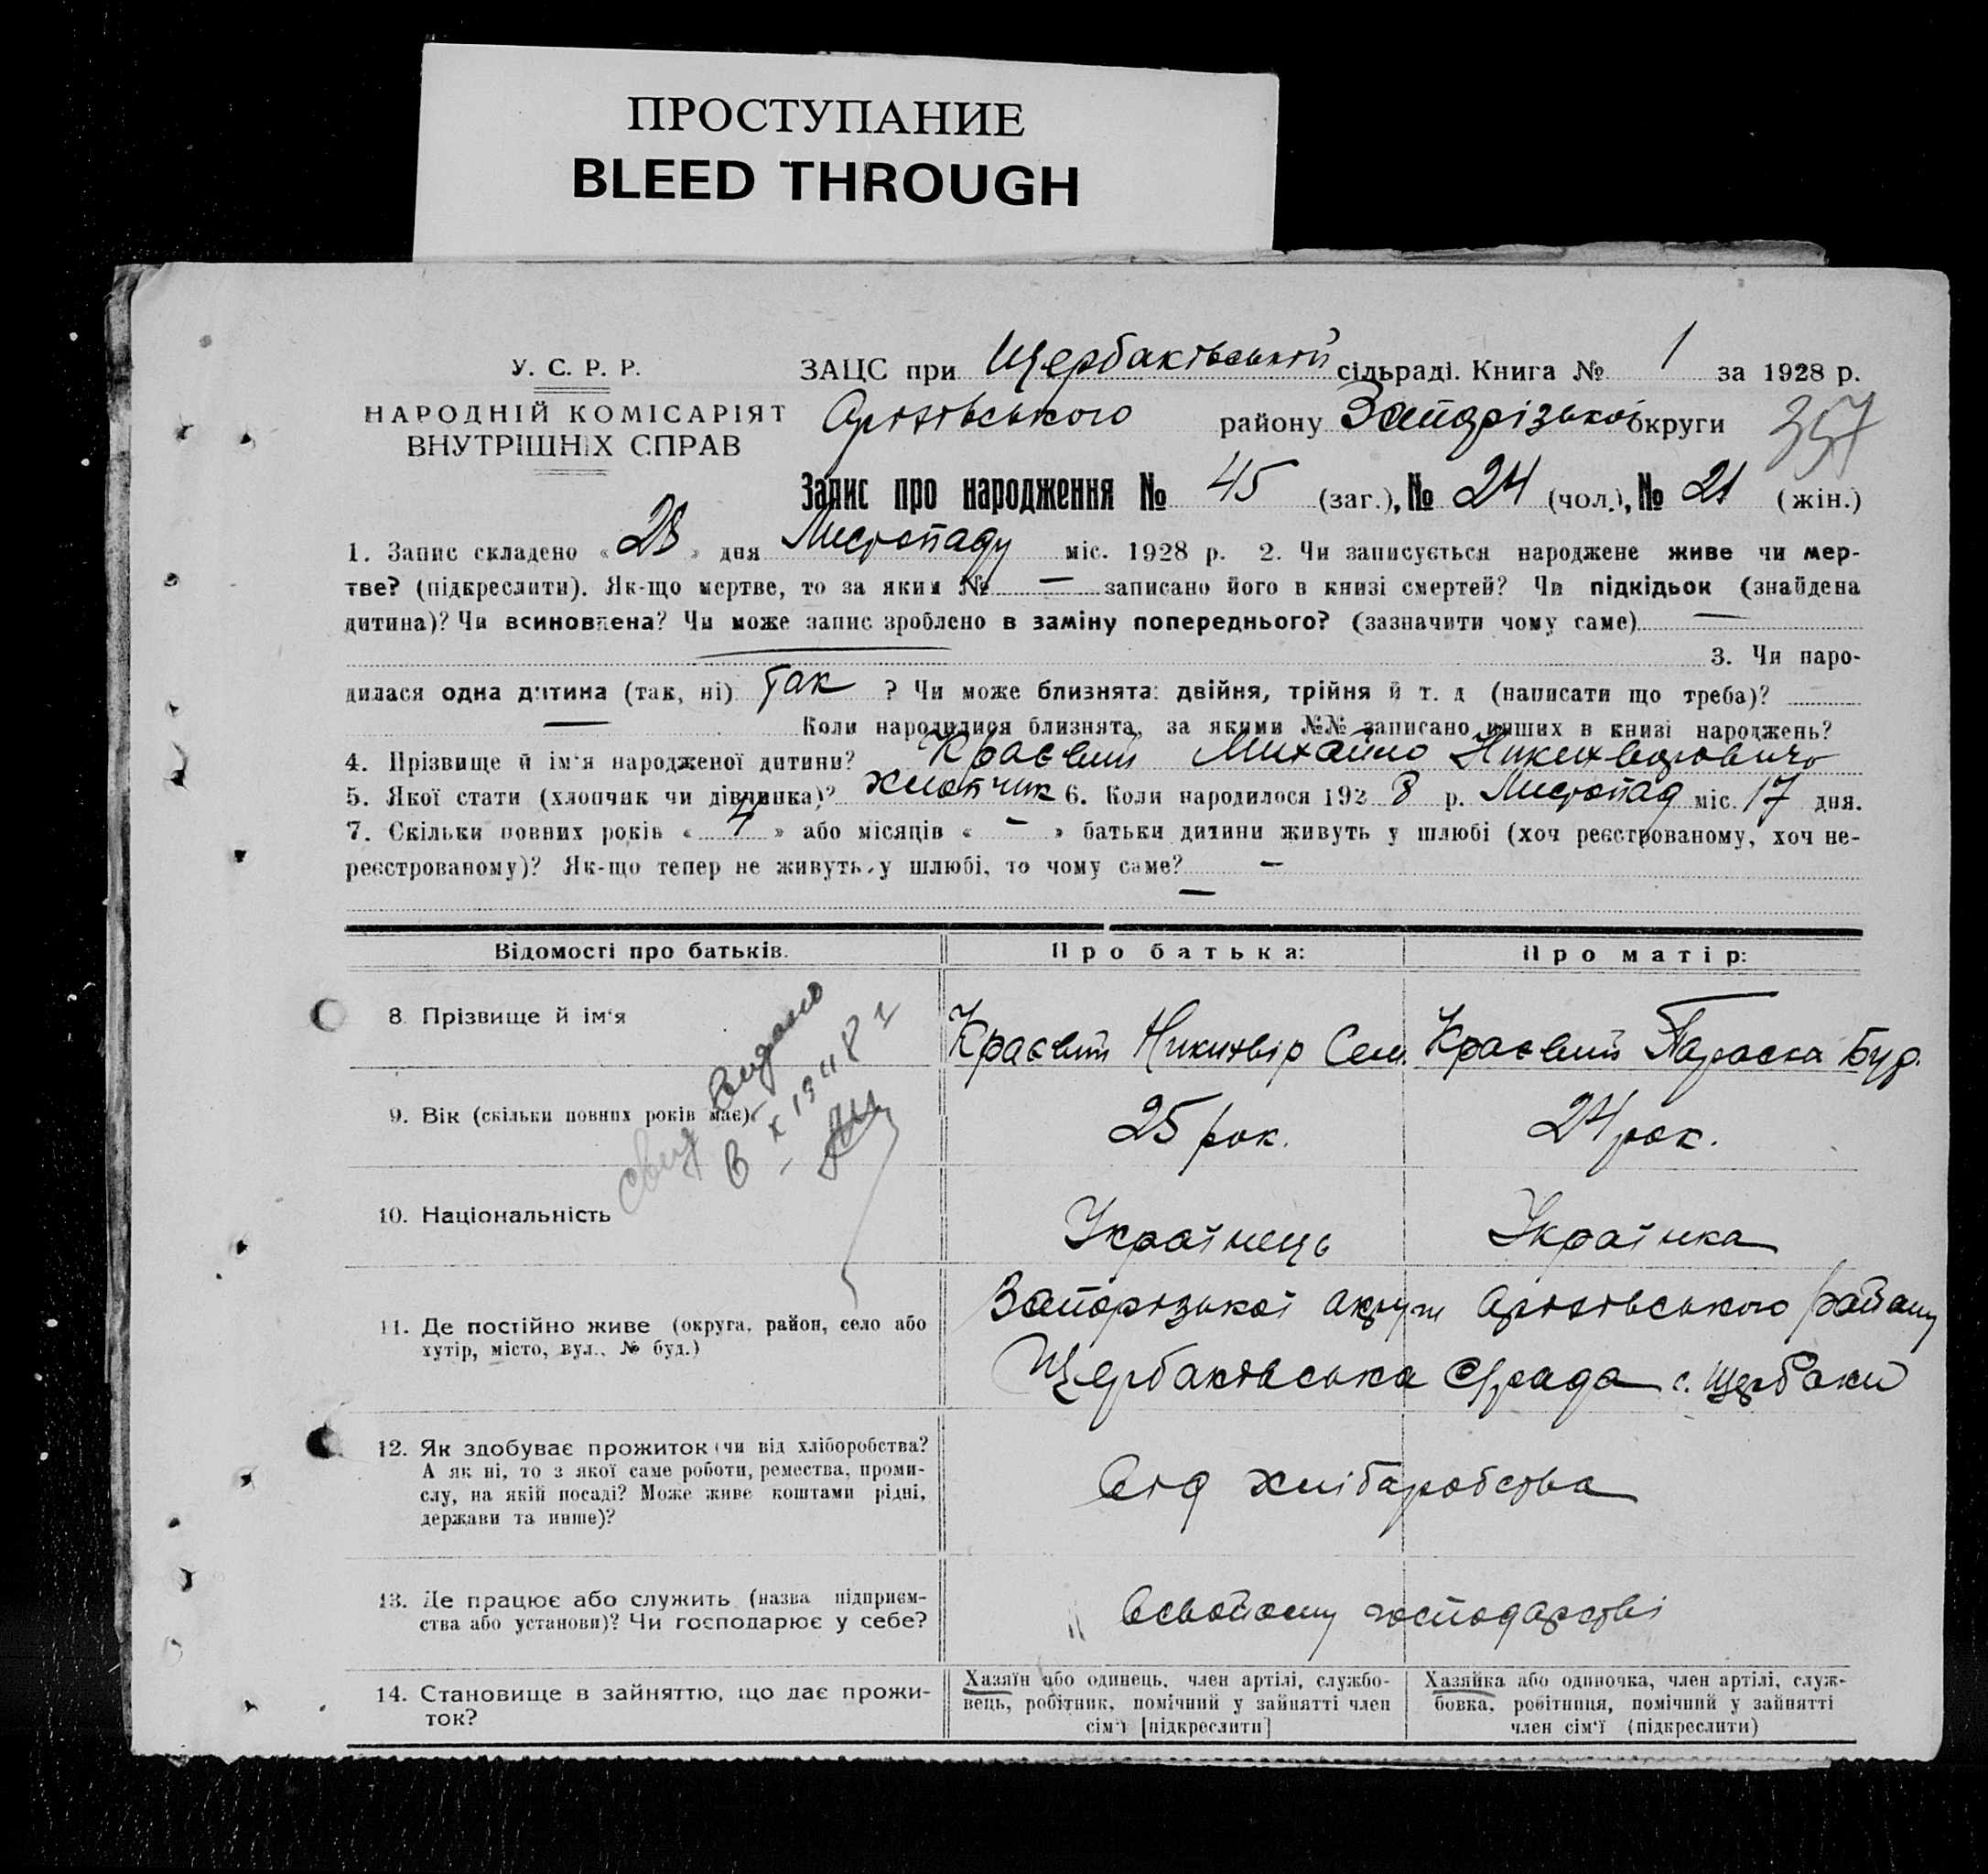 ПРОСТУПАНИЕ
BLEED THROUGH
У. С. Р. Р.
НАРОДНІЙ КОМІСАРІЯТ
ВНУТРІШНІХ СПРАВ
ЗАЦС при Щербаківській сільраді. Книга № 1 за 1928 р.
Оріхівського району Запорізької округи 357
Запис про народження № 45 (заг.), № 24 (чол.), № 21 (жін.)
1. Запис складено « 28 » дня Листопаду міс. 1928 р. 2. Чи записується народжене живе чи мер-
тве? (підкреслити). Як-що мертве, то за яким № — записано його в книзі смертей? Чи підкідьок (знайдена
дитина)? Чи всиновлена? Чи може запис зроблено в заміну попереднього? (зазначити чому саме) —
3. Чи наро-
дилася одна дитина (так, ні) так ? Чи може близнята: двійня, трійня й т. д (написати що треба)?
— Коли народилися близнята, за якими №№ записано инших в книзі народжень?
4. Прізвище й ім'я народженої дитини? Краєвий Михайло Никихворовичо
5. Якої стати (хлопчик чи дівчинка)? хлопчик 6. Коли народилося 192 8 р. Листопад міс. 17 дня.
7. Скільки повних років « 4 » або місяців « - » батьки дитини живуть у шлюбі (хоч реєстрованому, хоч не-
реєстрованому)? Як-що тепер не живуть у шлюбі, то чому саме? —
—
Відомості про батьків. Про батька: Про матір:
8. Прізвище й ім'я Краєвий Никихвір Сем. Краєвий Параска Буд.
9. Вік (скільки повних років має) 25 рок. 24 рок.
свид видано
6 X 1948 г
10. Національність Українець Українка
11. Де постійно живе (округа, район, село або
хутір, місто, вул., № буд.)
Запорізької округи Оріхівського району
Щербаківська с/рада с. Щербаки
12. Як здобуває прожиток (чи від хліборобства?
А як ні, то з якої саме роботи, ремества, проми-
слу, на якій посаді? Може живе коштами рідні,
держави та инше)?
Від хліборобства
13. Де працює або служить (назва підприєм-
ства або установи)? Чи господарює у себе?
Всвойому господарстві
14. Становище в зайняттю, що дає прожи-
ток?
Хазяїн або одинець, член артілі, службо-
вець, робітник, помічний у зайнятті член
сім'ї [підкреслити]
Хазяйка або одиночка, член артілі, служ-
бовка, робітниця, помічний у зайнятті
член сім'ї (підкреслити)